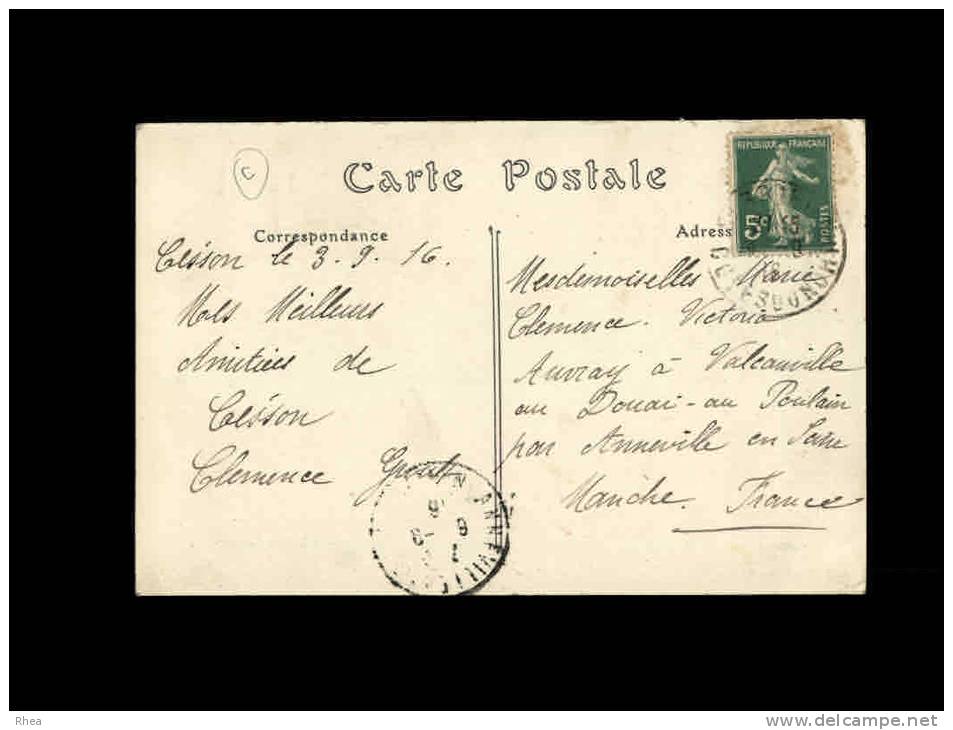 C
Carte Postale
REPUBLIQUE FRANÇAISE
5c
POSTES
Correspondance
Cesson le 3. 9. 16.
Mes Meilleurs
Amitiées de
Cesson
Clemence
Adress
Mesdemoiselles Marie
Clemence. Victoria
Auvray à Valcanville
au Douai-au Poulain
par Anneville en Saire
Manche. France
ANNEVILLE
Rhea
www.delcampe.net